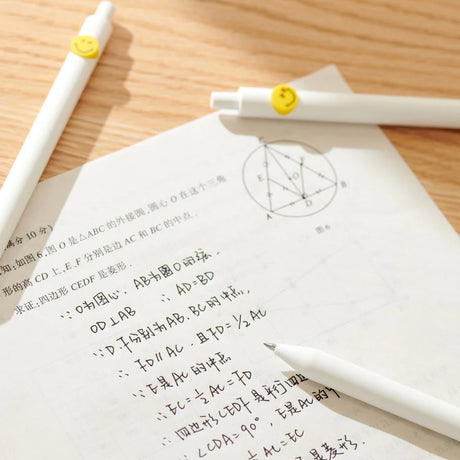 C
E
F
O
B
A
D
图6
满分 10 分)
知:如图 6,圆 O 是△ABC 的外接圆,圆心 O 在这个三角
形的高 CD 上,E、F 分别是边 AC 和 BC 的中点.
求证:四边形 CEDF 是菱形.
∵ O为圆心, AB为圆O的弦,
OD⊥AB ∴ AD=BD
∵ D.F分别为AB.BC的中点,
∴ FD∥AC, 且FD=1/2 AC
∵ E是AC的中点
∴ EC=1/2 AC=FD
∴ 四边形CEDF是平行四边
∵ ∠CDA=90°, E是AC的中
1/2 AC=EC
是菱形.